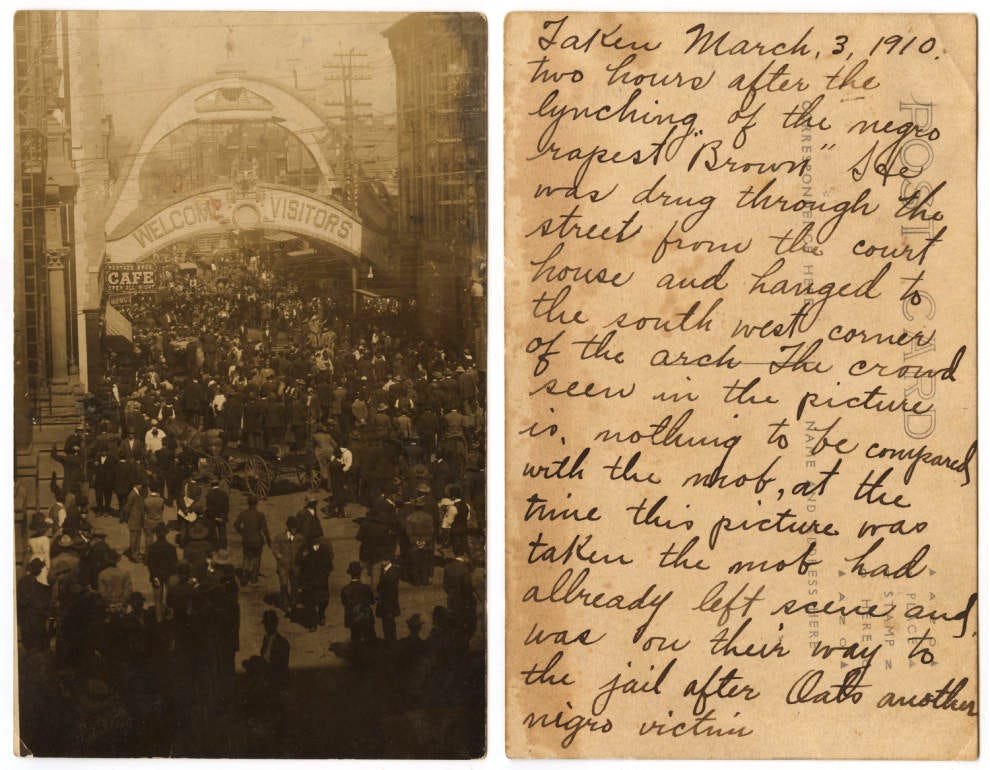 WELCOME VISITORS
CAFE
OPEN ALL NIGHT
Taken March, 3, 1910.
two hours after the
lynching of the negro
rapest "Brown" Hee
was drug through the
street from the court
house and hanged to
the south west corner
of the arch - The crowd
seen in the picture
is, nothing to be compared
with the mob, at the
time this picture was
taken the mob had
allready left scene and
was on their way to
the jail after Oats another
nigro victim
POST CARD
CORRESPONDENCE HERE
NAME AND ADDRESS HERE
AZO
PLACE
STAMP
HERE
AZO